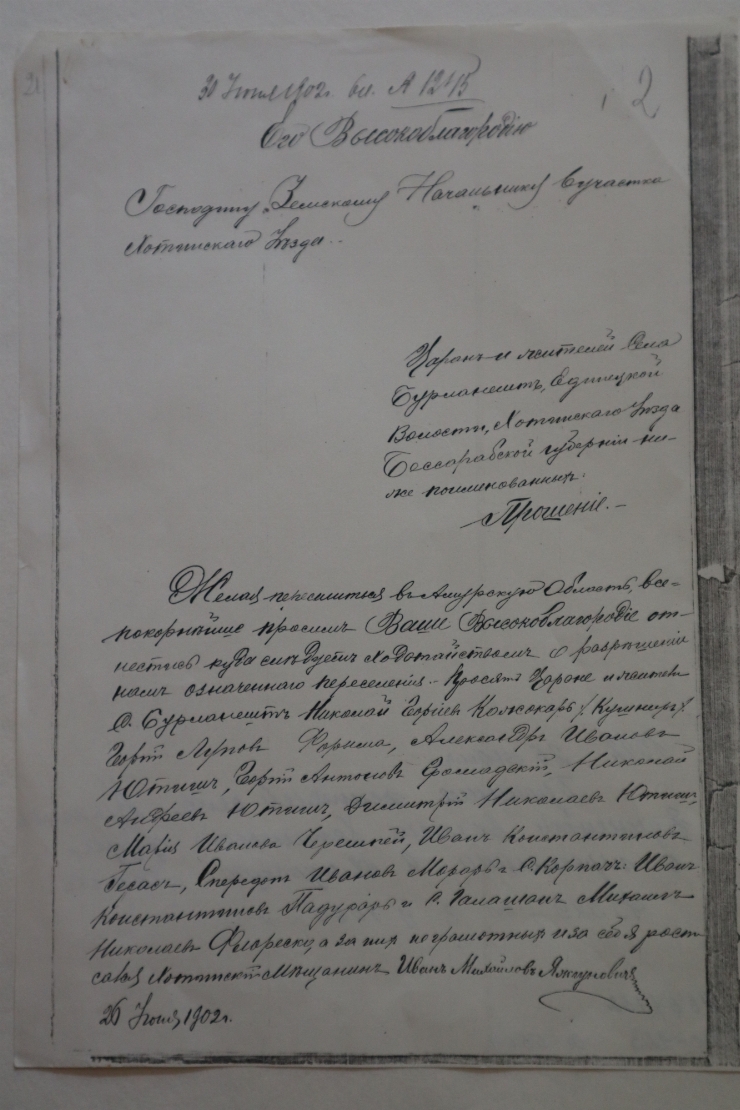 21
30 Іюня 1902г. вх. А 1245
2
Его Высокоблагородію
Господину Земскому Начальнику 6 участка
Хотинскаго Уѣзда..
Царанъ и жителей Села
Бурланештъ, Единецкой
Волости, Хотинскаго Уѣзда
Бессарабской губерніи ни-
же поименованныхъ.
Прошеніе.
Желая переселиться въ Амурскую Область, все-
покорнѣйше просимъ Ваше Высокоблагородіе от-
нестись куда слѣдуетъ ходотайствомъ о разрѣшеніи
намъ означеннаго переселенія. Просятъ Царане и жители
С. Бурланештъ Николай Георгіевъ Кожокарь (Кушниръ)
Георгій Луповъ Форима, Александръ Ивановъ
Ютишъ, Георгій Антоновъ Громадскій, Николай
Андреевъ Ютишъ, Димитрій Николаевъ Ютишъ,
Марія Иванова Черешней, Иванъ Константиновъ
Ивановъ Мораръ и С. Корпачъ: Иванъ
Константиновъ Падураръ и С. Галашанъ Михаилъ
Николаевъ Флореско, а за них неграмотных и за себя росп
сався Хотинскій Мѣщанинъ Иванъ Михайловъ
26 Іюня 1902г.